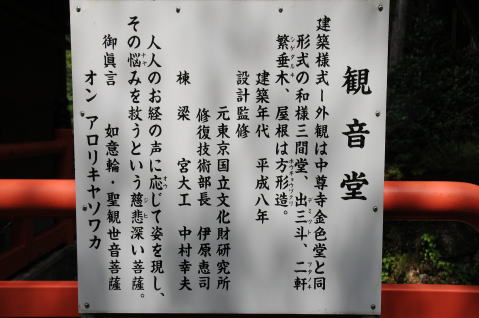 観音堂
建築様式ー外観は中尊寺金色堂と同
形式の和様三間堂、出三斗、二軒
繁垂木、屋根は方形造。
建築年代　平成八年
設計監修
元東京国立文化財研究所
修復技術部長　伊原恵司
棟　梁　宮大工　中村幸夫
人人のお経の声に応じて姿を現し、
その悩みを救うという慈悲深い菩薩。
御眞言　如意輪・聖観世音菩薩
オン　アロリキャソワカ